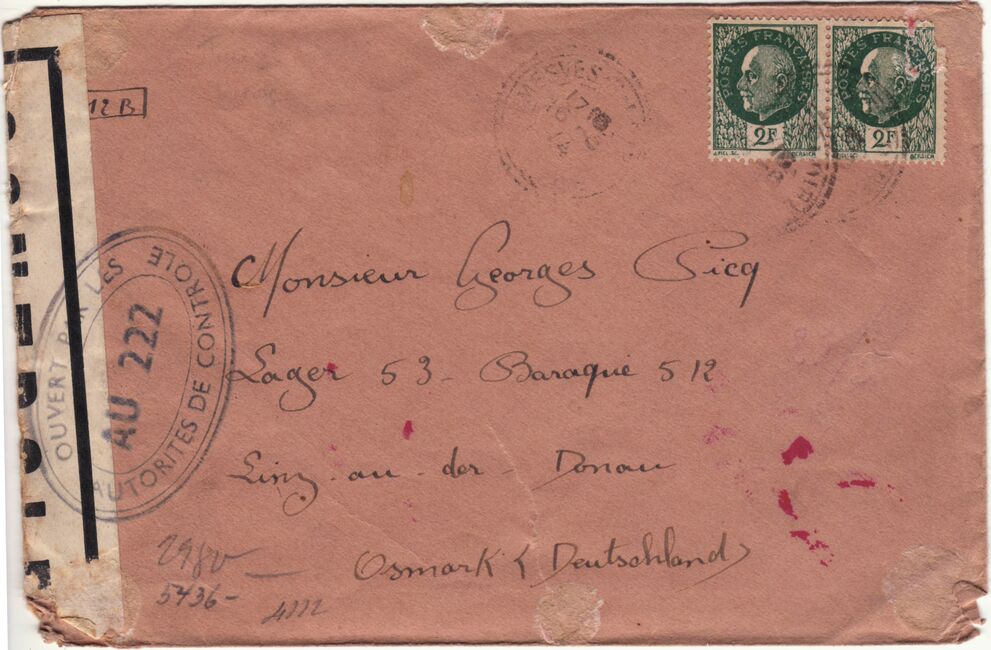 12 B
MESVES
17
POSTES FRANÇAISES
2F
BERSIER
POSTES FRANÇAISES
2F
BERSIER
OUVERT PAR LES
AUTORITES DE CONTROLE
AU 222
Monsieur Georges Picq
Lager 53 - Baraque 512
Linz-au-der-Donau
Osmark (Deutschland)
5436-